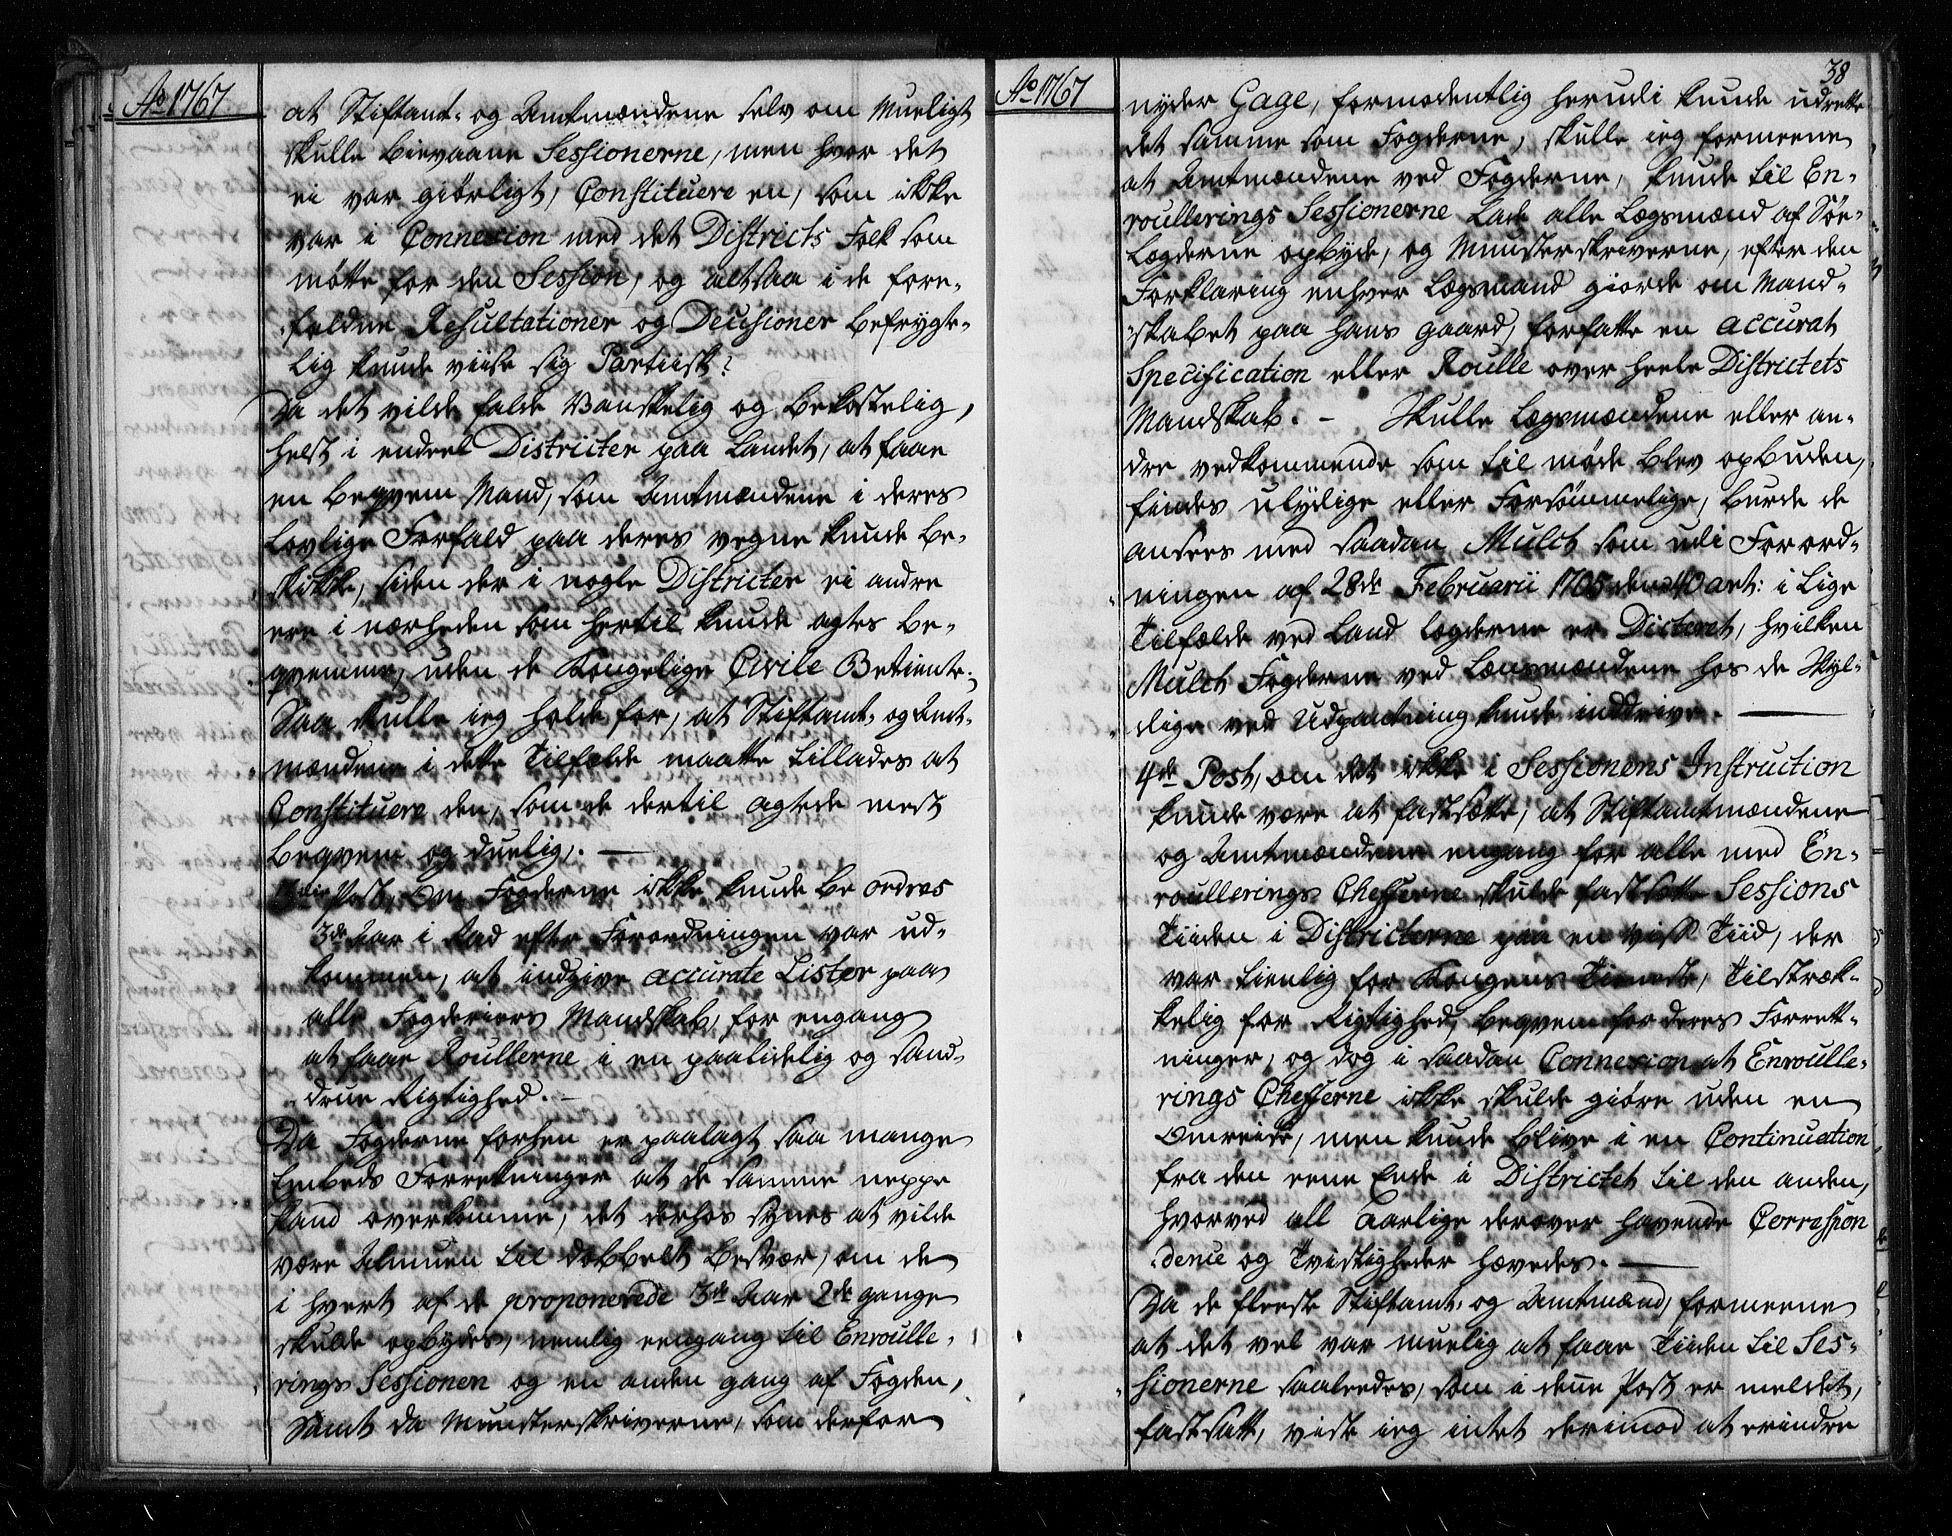 Ao. 1767.
at Stiftamt- og Amtmændene selv om Mueligt
skulle bievaane Sessionerne, men hvor det
ei var giørligt, Constituere en, som ikke
var i Connexion med det Districts Folk som
møtte for den Session, og altsaa i de fore-
faldne Resultationer og Decisioner befrygt-
lig kunde viise sig Partiisk?
Da det vilde falde Vanskelig og bekostelig,
helst i endeel Districter paa Landet, at faae
en beqvem Mand, som Amtmændene i deres
Lovlige Forfald paa deres vegne kunde be-
skikke, siden der i nogle Districter ei andre
ere i nærheden som hertil kunde agtes be-
qvemme, uden de Kongelige Civile Betiente;
Saa skulle ieg holde for, at Stiftamt- og Amt-
mændene i dette Tilfælde maatte tillades at
Constituere den, som de dertil agtede mest
beqvem og duelig. —
3die Post, Om Fogderne ikke kunde be ordres
3de Aar i Rad efter Forordningen var ud-
kommen, at indgive accurate Lister paa
alle Fogderiers Mandskab, for engang
at faae Roullerne i en paalidelig og sand-
drue Rigtighed. —
Da Fogderne forhen er paalagt saa mange
Embeds Forretninger at de samme neppe
kand overkomme, det derhos synes at vilde
være Almuen til dobbelt Besvær, om de
i hvert af de proponerede 3de Aar 2de gange
skulde opbydes, nemlig eengang til Enroulle-
rings Sessionen og en anden gang af Fogden,
Samt da Munsterskriverne, som derfor
Ao. 1767
38
nyder Gage, formodentlig herudi kunde udrette
det samme som Fogderne, skulle ieg formeene
at Amtmændene ved Fogderne, kunde til En-
roullerings Sessionerne lade alle Lægsmænd af Søe-
Lægderne opbyde, og Munsterskriverne, efter den
Forklaring enhver Lægsmand giorde om Mand-
skabet paa hans gaard, forfatte en accurat
Specification eller Roulle over heele Districtets
Mandskab. — Skulle Lægsmændene eller an-
dre vedkommende som til møde blev opbuden,
findes ulydige eller Forsømmelige, burde de
ansees med saadan Mulct som udi Forord-
ningen af 28de Februarii 1705 dens 40 art: i Lige
Tilfælde ved Land lægderne er Dicteret, hvilken
Mulct Fogderne ved Lænsmændene hos de Skyl-
dige ved Udpantning kunde inddrive. —
4de Post, om det ikke i Sessionens Instruction
kunde være at fastsætte, at Stiftamtmændene
og Amtmændene engang for alle med En-
roullerings Chefferne skulde fastsætte Sessions
Tiiden i Districterne paa en viss Tiid, der
var tienlig for Kongens Tieneste, Tilstræk-
kelig for Rigtighed, beqvem for deres Forrett-
ninger, og dog i saadan Connexion at Enroulle-
rings Chefferne ikke skulde giøre uden en
Omreise, men kunde blive i en Continuation
fra den eene Ende i Districtet til den anden,
hvorved all Aarlige derover havende Correspon
dence og Tvistigheder hævedes. —
Da de fleeste Stiftamt- og Amtmænd, formeene
at det vel var muelig at faae Tiiden til Ses-
sionerne saaledes, som i denne Post er meldet,
fastsatt, viste ieg intet derimod at erindre